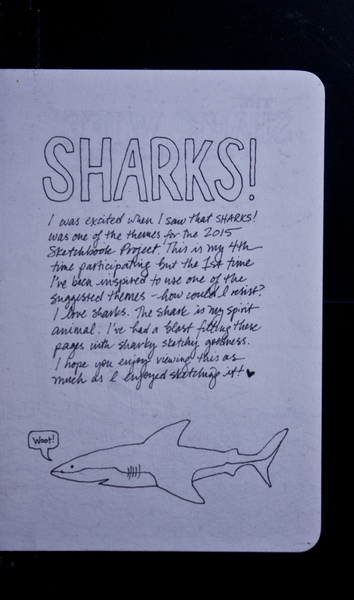 SHARKS!
I was excited when I saw that SHARKS!
was one of the themes for the 2015
Sketchbook Project. This is my 4th
time participating but the 1st time
I've been inspired to use one of the
suggested themes - how could I resist?
I love sharks. The shark is my spirit
animal. I've had a blast filling these
pages with sharky sketchy goodness.
I hope you enjoy viewing this as
much as I enjoyed sketching it! ♥
Woot!